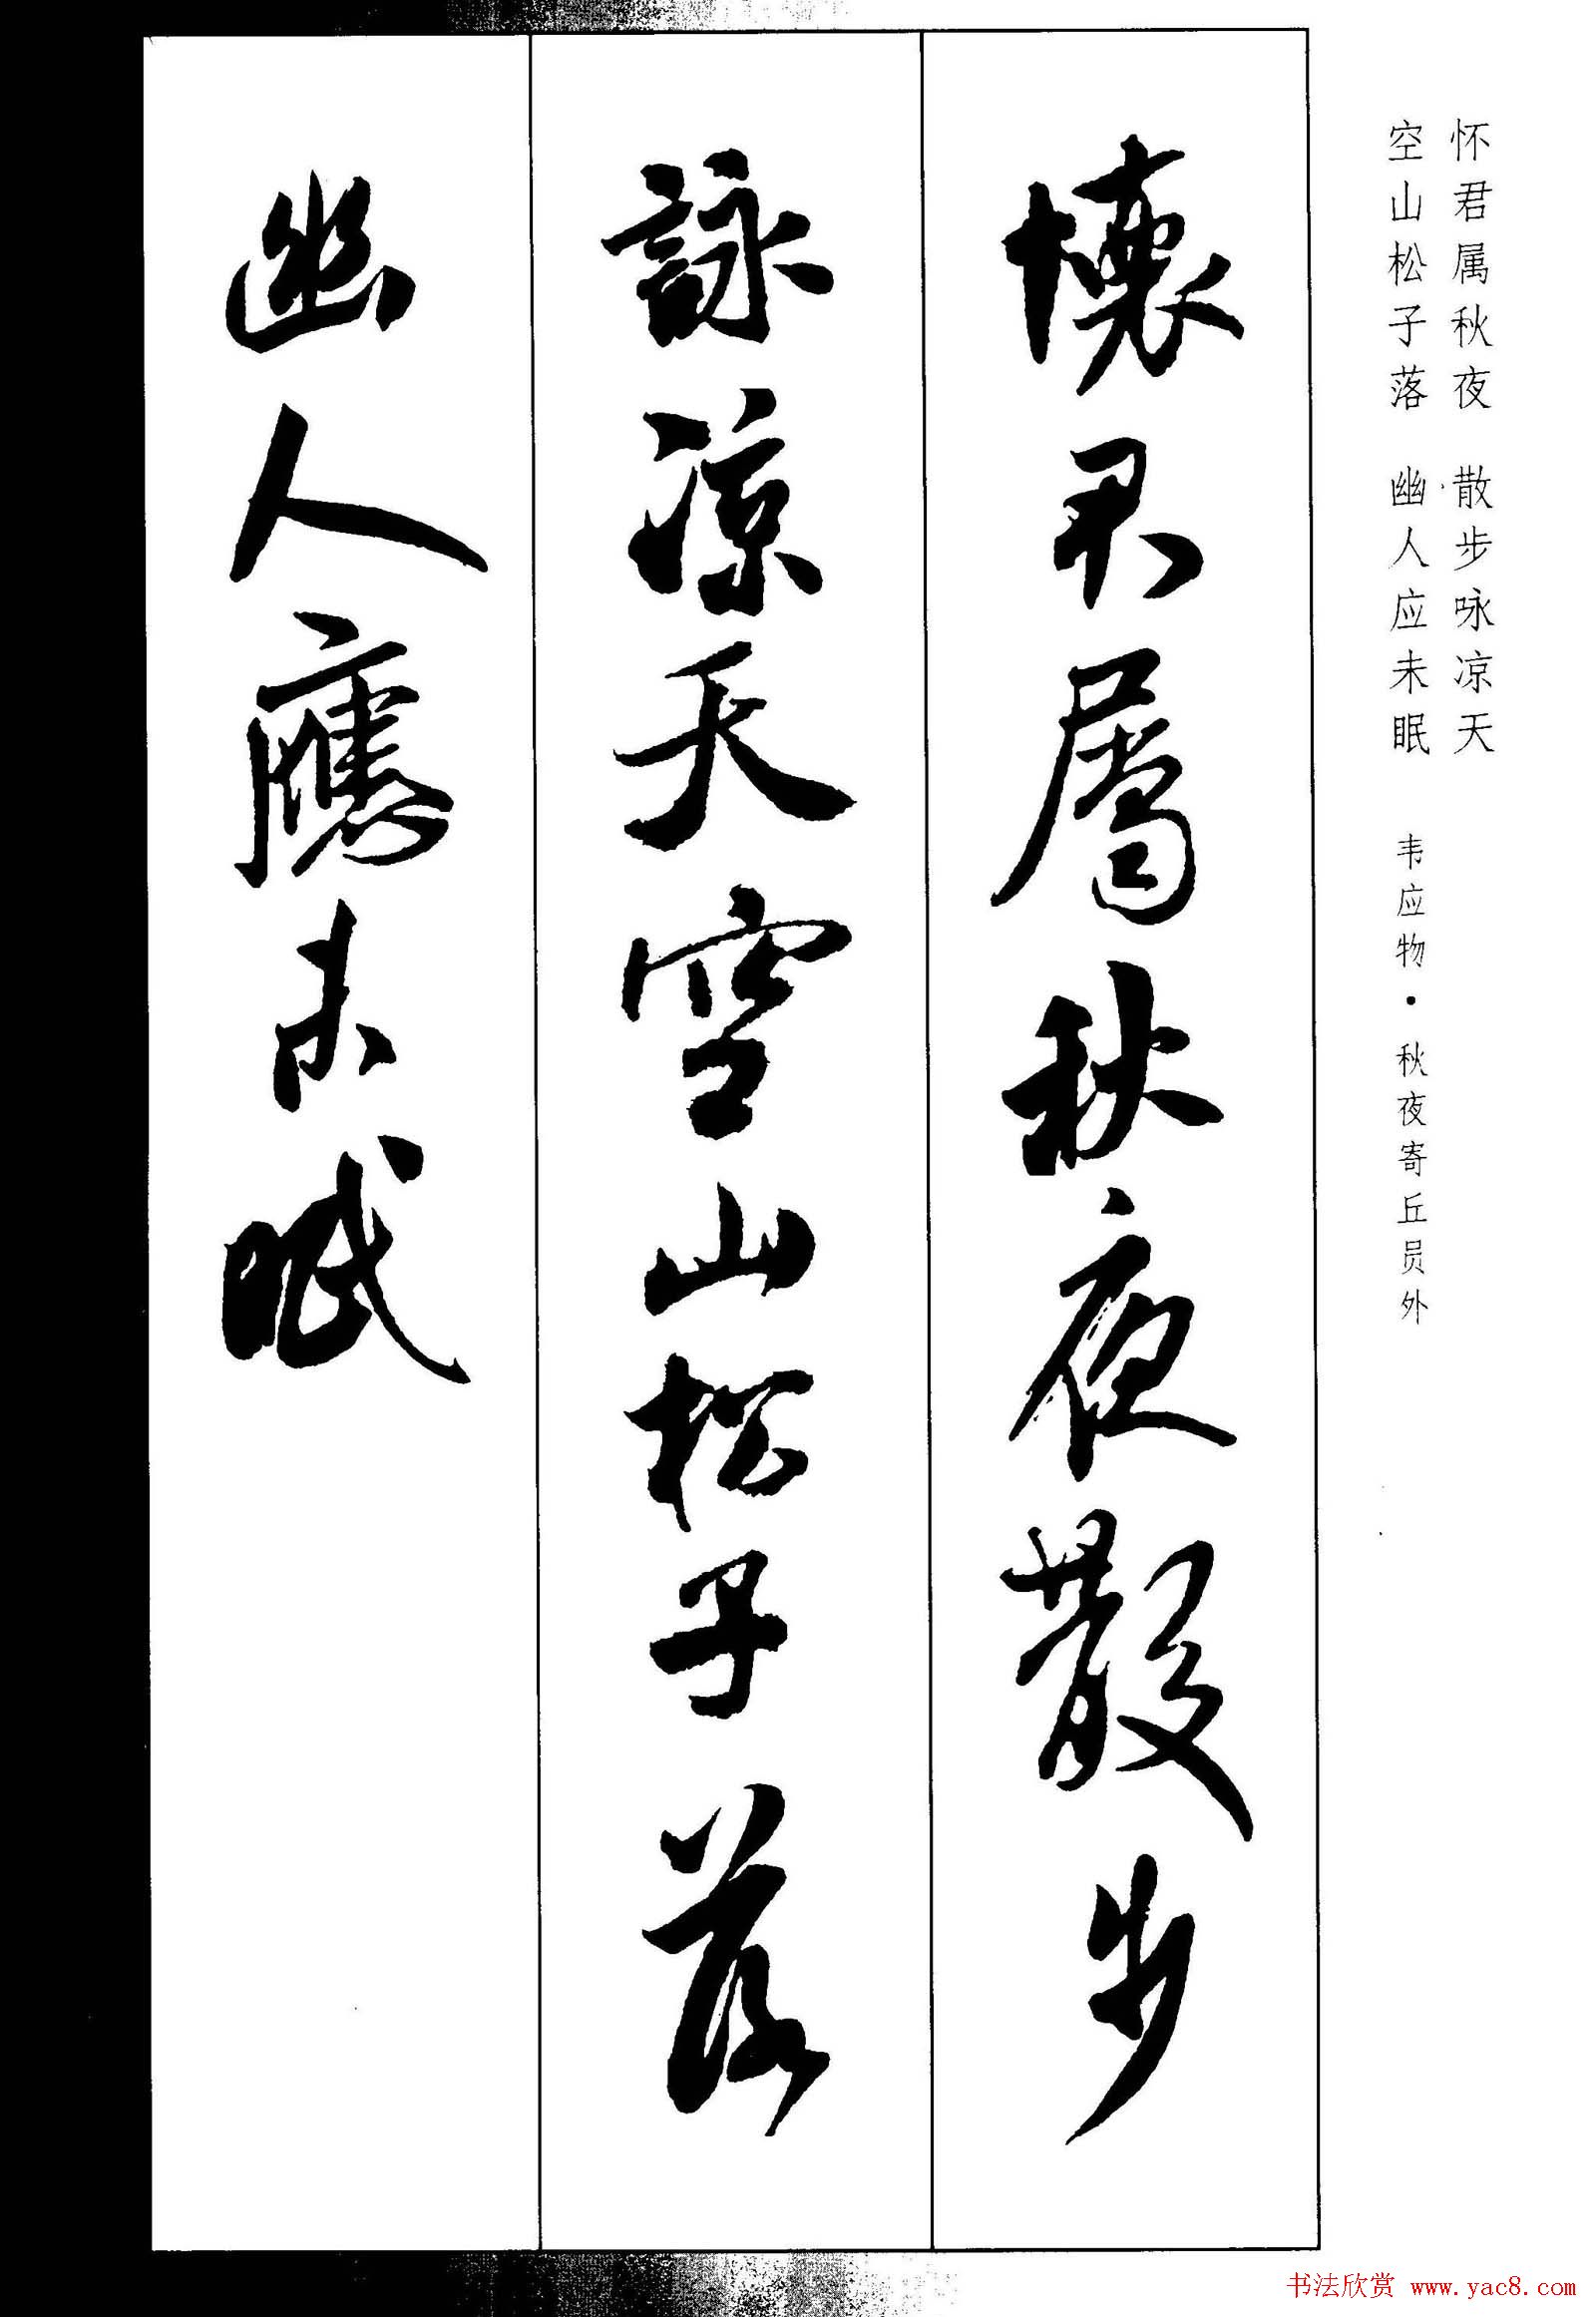 怀君属秋夜 散步咏凉天
空山松子落 幽人应未眠
韦应物·秋夜寄丘员外
懷君屬秋夜散步
詠涼天空山松子落
幽人應未眠
书法欣赏 www.yac8.com